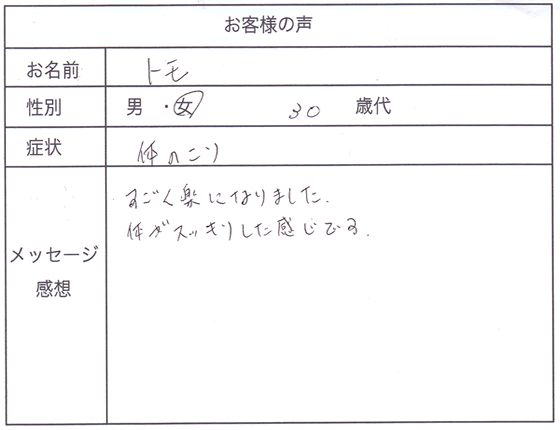 お客様の声
お名前 トモ
性別 男・女 30 歳代
症状 体のこり
メッセージ
感想
すごく楽になりました.
体がスッキリした感じです.